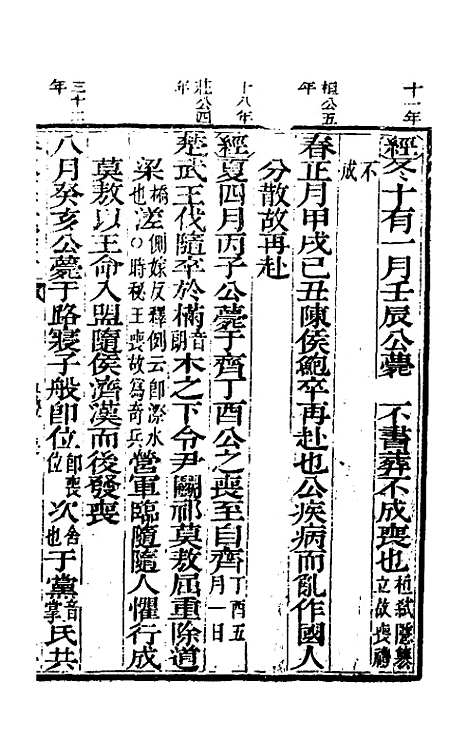 十一年
經冬十有一月壬辰公薨　不書葬不成喪也桓弒隱篡立故喪禮
不成
桓公五年
春正月甲戌己丑陳侯鮑卒再赴也公疾病而亂作國人
分散故再赴
十八年
經夏四月丙子公薨于齊丁酉公之喪至自齊丁酉五月一日
莊公四年
楚武王伐隨卒於樠音朗木之下令尹鬬祁莫敖屈重除道
梁橋也溠側嫁反釋例云即溠水○時秘王喪故為奇兵營軍臨隨隨人懼行成
莫敖以王命入盟隨侯濟漢而後發喪
三十二年
八月癸亥公薨于路寢子般即位即喪位次舍也于黨音掌氏共